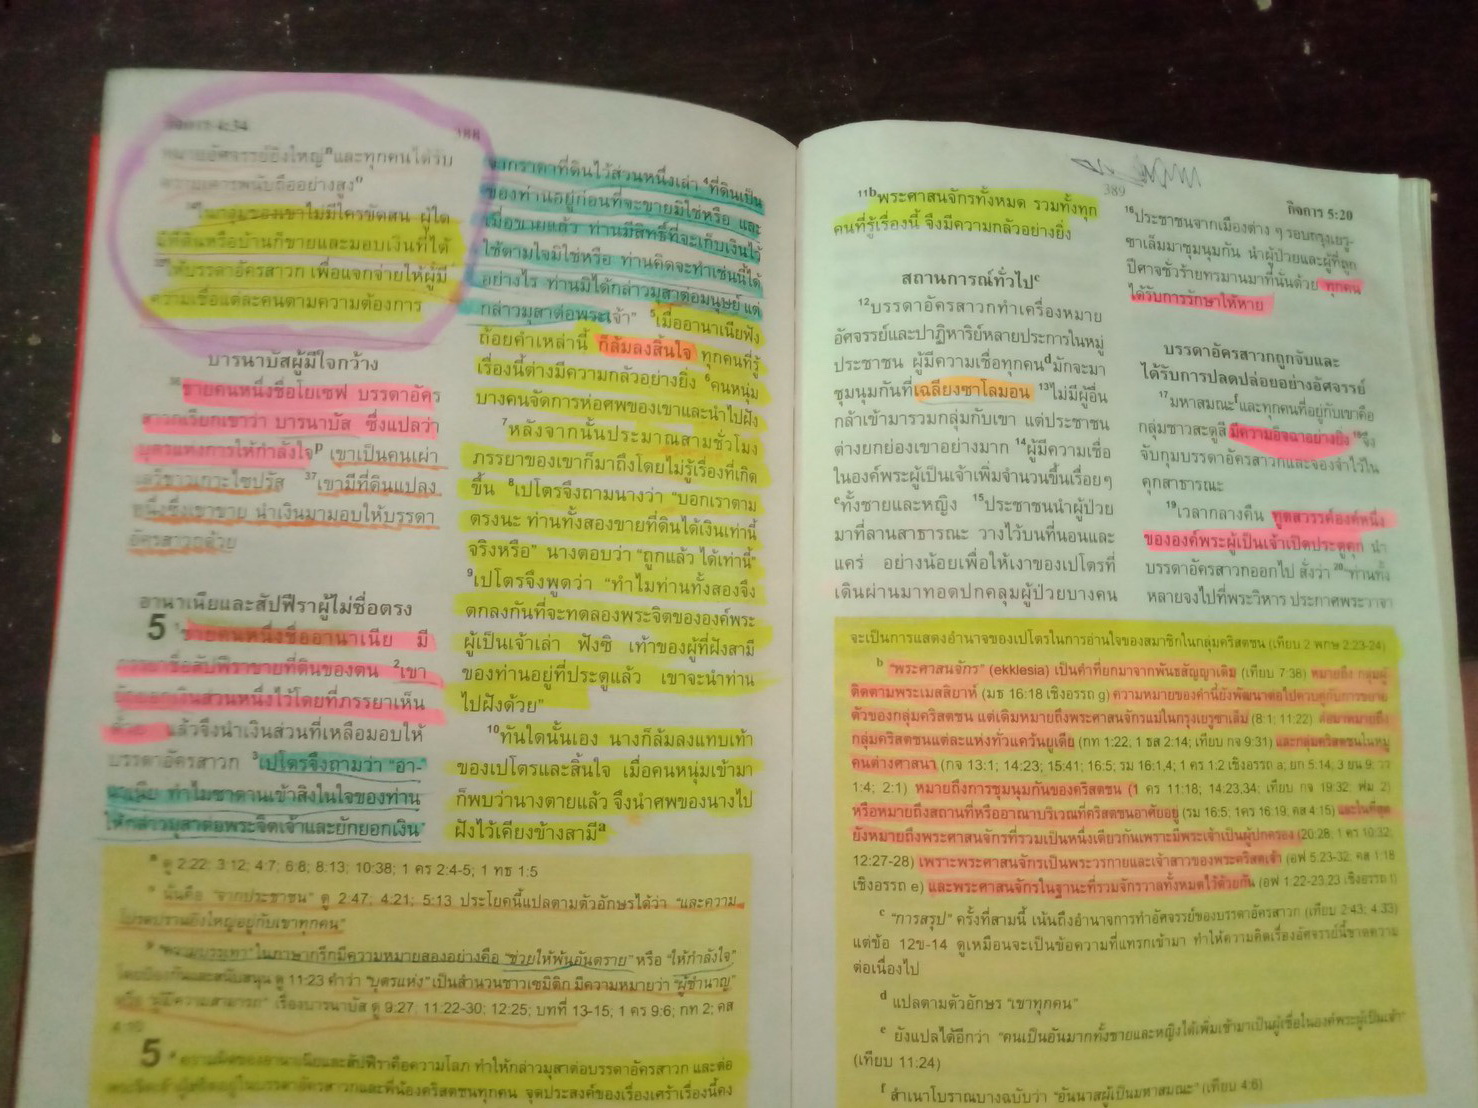 กิจการ 4:34
388
หมายอัศจรรย์ยิ่งใหญ่ⁿและทุกคนได้รับ
ความเคารพนับถืออย่างสูงᵒ
³⁴ในกลุ่มของเขาไม่มีใครขัดสน ผู้ใด
มีที่ดินหรือบ้านก็ขายและมอบเงินที่ได้
³⁵ให้บรรดาอัครสาวก เพื่อแจกจ่ายให้ผู้มี
ความเชื่อแต่ละคนตามความต้องการ
บารนาบัสผู้มีใจกว้าง
³⁶ชายคนหนึ่งชื่อโยเซฟ บรรดาอัคร
สาวกเรียกเขาว่า บารนาบัส ซึ่งแปลว่า
บุตรแห่งการให้กำลังใจᵖ เขาเป็นคนเผ่า
เลวีชาวเกาะไซปรัส ³⁷เขามีที่ดินแปลง
หนึ่งซึ่งเขาขาย นำเงินมามอบให้บรรดา
อัครสาวกด้วย
อานาเนียและสัปฟีราผู้ไม่ซื่อตรง
5 ¹ชายคนหนึ่งชื่ออานาเนีย มี
ภรรยาชื่อสัปฟีราขายที่ดินของตน ²เขา
ยักยอกเงินส่วนหนึ่งไว้โดยที่ภรรยาเห็น
ด้วย แล้วจึงนำเงินส่วนที่เหลือมอบให้
บรรดาอัครสาวก ³เปโตรจึงถามว่า “อา-
นาเนีย ทำไมซาตานเข้าสิงในใจของท่าน
ให้กล่าวมุสาต่อพระจิตเจ้าและยักยอกเงิน
จากราคาที่ดินไว้ส่วนหนึ่งเล่า ⁴ที่ดินเป็น
ของท่านอยู่ก่อนที่จะขายมิใช่หรือ และ
เมื่อขายแล้ว ท่านมีสิทธิ์ที่จะเก็บเงินไว้
ใช้ตามใจมิใช่หรือ ท่านคิดจะทำเช่นนี้ได้
อย่างไร ท่านมิได้กล่าวมุสาต่อมนุษย์ แต่
กล่าวมุสาต่อพระเจ้า” ⁵เมื่ออานาเนียฟัง
ถ้อยคำเหล่านี้ ก็ล้มลงสิ้นใจ ทุกคนที่รู้
เรื่องนี้ต่างมีความกลัวอย่างยิ่ง ⁶คนหนุ่ม
บางคนจัดการห่อศพของเขาและนำไปฝัง
⁷หลังจากนั้นประมาณสามชั่วโมง
ภรรยาของเขาก็มาถึงโดยไม่รู้เรื่องที่เกิด
ขึ้น ⁸เปโตรจึงถามนางว่า “บอกเราตาม
ตรงนะ ท่านทั้งสองขายที่ดินได้เงินเท่านี้
จริงหรือ” นางตอบว่า “ถูกแล้ว ได้เท่านี้”
⁹เปโตรจึงพูดว่า “ทำไมท่านทั้งสองจึง
ตกลงกันที่จะทดลองพระจิตขององค์พระ
ผู้เป็นเจ้าเล่า ฟังซิ เท้าของผู้ที่ฝังสามี
ของท่านอยู่ที่ประตูแล้ว เขาจะนำท่าน
ไปฝังด้วย”
¹⁰ทันใดนั้นเอง นางก็ล้มลงแทบเท้า
ของเปโตรและสิ้นใจ เมื่อคนหนุ่มเข้ามา
ก็พบว่านางตายแล้ว จึงนำศพของนางไป
ฝังไว้เคียงข้างสามีᵃ
ⁿ ดู 2:22; 3:12; 4:7; 6:8; 8:13; 10:38; 1 คร 2:4-5; 1 ทธ 1:5
ᵒ นั่นคือ “จากประชาชน” ดู 2:47; 4:21; 5:13 ประโยคนี้แปลตามตัวอักษรได้ว่า “และความ
โปรดปรานยิ่งใหญ่อยู่กับเขาทุกคน”
ᵖ “ความบรรเทา” ในภาษากรีกมีความหมายสองอย่างคือ “ช่วยให้พ้นอันตราย” หรือ “ให้กำลังใจ”
โดยป้องกันและสนับสนุน ดู 11:23 คำว่า “บุตรแห่ง” เป็นสำนวนชาวเซมิติก มีความหมายว่า “ผู้ชำนาญ”
หรือ “ผู้มีความสามารถ” เรื่องบารนาบัส ดู 9:27; 11:22-30; 12:25; บทที่ 13-15; 1 คร 9:6; กท 2; คส
4:10
5 ᵃ ความผิดของอานาเนียและสัปฟีราคือความโลภ ทำให้กล่าวมุสาต่อบรรดาอัครสาวก และต่อ
พระจิตเจ้า ผู้สถิตอยู่ในบรรดาอัครสาวกและพี่น้องคริสตชนทุกคน จุดประสงค์ของเรื่องเศร้าเรื่องนี้คง
389
กิจการ 5:20
¹¹ᵇพระศาสนจักรทั้งหมด รวมทั้งทุก
คนที่รู้เรื่องนี้ จึงมีความกลัวอย่างยิ่ง
สถานการณ์ทั่วไปᶜ
¹²บรรดาอัครสาวกทำเครื่องหมาย
อัศจรรย์และปาฏิหาริย์หลายประการในหมู่
ประชาชน ผู้มีความเชื่อทุกคนᵈมักจะมา
ชุมนุมกันที่เฉลียงซาโลมอน ¹³ไม่มีผู้อื่น
กล้าเข้ามารวมกลุ่มกับเขา แต่ประชาชน
ต่างยกย่องเขาอย่างมาก ¹⁴ผู้มีความเชื่อ
ในองค์พระผู้เป็นเจ้าเพิ่มจำนวนขึ้นเรื่อยๆ
ᵉทั้งชายและหญิง ¹⁵ประชาชนนำผู้ป่วย
มาที่ลานสาธารณะ วางไว้บนที่นอนและ
แคร่ อย่างน้อยเพื่อให้เงาของเปโตรที่
เดินผ่านมาทอดปกคลุมผู้ป่วยบางคน
¹⁶ประชาชนจากเมืองต่าง ๆ รอบกรุงเยรู-
ซาเล็มมาชุมนุมกัน นำผู้ป่วยและผู้ที่ถูก
ปีศาจชั่วร้ายทรมานมาที่นั่นด้วย ทุกคน
ได้รับการรักษาให้หาย
บรรดาอัครสาวกถูกจับและ
ได้รับการปลดปล่อยอย่างอัศจรรย์
¹⁷มหาสมณะᶠและทุกคนที่อยู่กับเขาคือ
กลุ่มชาวสะดูสี มีความอิจฉาอย่างยิ่ง ¹⁸จึง
จับกุมบรรดาอัครสาวกและจองจำไว้ใน
คุกสาธารณะ
¹⁹เวลากลางคืน ทูตสวรรค์องค์หนึ่ง
ขององค์พระผู้เป็นเจ้าเปิดประตูคุก นำ
บรรดาอัครสาวกออกไป สั่งว่า ²⁰“ท่านทั้ง
หลายจงไปที่พระวิหาร ประกาศพระวาจา
จะเป็นการแสดงอำนาจของเปโตรในการอ่านใจของสมาชิกในกลุ่มคริสตชน (เทียบ 2 พกษ 2:23-24)
ᵇ “พระศาสนจักร” (ekklesia) เป็นคำที่ยกมาจากพันธสัญญาเดิม (เทียบ 7:38) หมายถึง กลุ่มผู้
ติดตามพระเมสสิยาห์ (มธ 16:18 เชิงอรรถ g) ความหมายของคำนี้ยังพัฒนาต่อไปควบคู่กับการขยาย
ตัวของกลุ่มคริสตชน แต่เดิมหมายถึงพระศาสนจักรแม่ในกรุงเยรูซาเล็ม (8:1; 11:22) ต่อมาหมายถึง
กลุ่มคริสตชนแต่ละแห่งทั่วแคว้นยูเดีย (กท 1:22; 1 ธส 2:14; เทียบ กจ 9:31) และกลุ่มคริสตชนในหมู่
คนต่างศาสนา (กจ 13:1; 14:23; 15:41; 16:5; รม 16:1,4; 1 คร 1:2 เชิงอรรถ a; ยก 5:14; 3 ยน 9; วว
1:4; 2:1) หมายถึงการชุมนุมกันของคริสตชน (1 คร 11:18; 14:23,34; เทียบ กจ 19:32; ฟม 2)
หรือหมายถึงสถานที่หรืออาณาบริเวณที่คริสตชนอาศัยอยู่ (รม 16:5; 1คร 16:19; คส 4:15) และในที่สุด
ยังหมายถึงพระศาสนจักรที่รวมเป็นหนึ่งเดียวกันเพราะมีพระเจ้าเป็นผู้ปกครอง (20:28; 1 คร 10:32;
12:27-28) เพราะพระศาสนจักรเป็นพระวรกายและเจ้าสาวของพระคริสตเจ้า (อฟ 5:23-32; คส 1:18
เชิงอรรถ e) และพระศาสนจักรในฐานะที่รวมจักรวาลทั้งหมดไว้ด้วยกัน (อฟ 1:22-23,23 เชิงอรรถ t)
ᶜ “การสรุป” ครั้งที่สามนี้ เน้นถึงอำนาจการทำอัศจรรย์ของบรรดาอัครสาวก (เทียบ 2:43; 4:33)
แต่ข้อ 12ข-14 ดูเหมือนจะเป็นข้อความที่แทรกเข้ามา ทำให้ความคิดเรื่องอัศจรรย์นี้ขาดความ
ต่อเนื่องไป
ᵈ แปลตามตัวอักษร “เขาทุกคน”
ᵉ ยังแปลได้อีกว่า “คนเป็นอันมากทั้งชายและหญิงได้เพิ่มเข้ามาเป็นผู้เชื่อในองค์พระผู้เป็นเจ้า”
(เทียบ 11:24)
ᶠ สำเนาโบราณบางฉบับว่า “อันนาสผู้เป็นมหาสมณะ” (เทียบ 4:6)